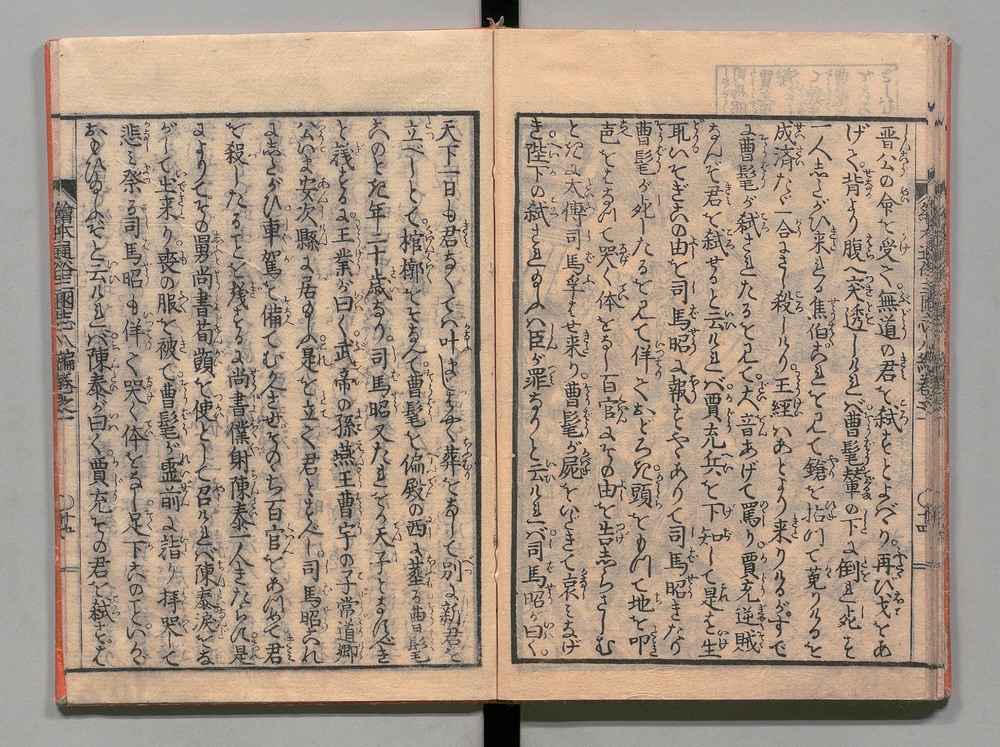 晋公の命を受て無道の君を弑すとよべり再び戈をあ
げて背より腹へ突透しければ曹髦輦の下に倒れ死す
一人したがひ来れる焦伯これを見て鎗を拈て蒐りけるを
成済たゞ一合にさし殺しけり王経はあとより来りけるがすで
に曹髦が弑されたるを見て大音あげて罵り賈充逆賊
なんぞ君を弑せると云ければ賈充兵を下知して是を生
取いそぎこの由を司馬昭に報とやありて司馬昭きたり
曹髦が死したるを見て佯ておどろき頭をもつて地を叩
声をはなつて哭く体をなし百官にその由を告しらさしむ
ときに太傅司馬孚はせ来り曹髦が屍をいだきて哀をなげ
き陛下の弑されたまふは臣が罪なりと云ければ司馬昭が曰く
天下一日も君なくては叶はじとはやく葬をなして別に新君を
立べしとて棺椁をとゝのへて曹髦を偏殿の西に葬る曹髦
このとき年二十歳なり司馬昭又たれをか天子となすべき
と議するに王業が曰く武帝の孫燕王曹宇の子常道郷
公いま安次縣に居たまふ是を立て君とすべし司馬昭これ
にしたがひ車駕を備てむかへさせそのゝち百官をあつめて君
を殺したることを議するに尚書僕射陳泰一人きたらず是
によりてその舅尚書荀顗を使として召ければ陳泰涙をな
がして生来り喪の服を被て曹髦が霊前に詣り拝哭して
悲み祭る司馬昭も佯て哭く体をなし足下このこといかゞ
おもひたまふぞと云ければ陳泰が曰く賈充その君を弑せる